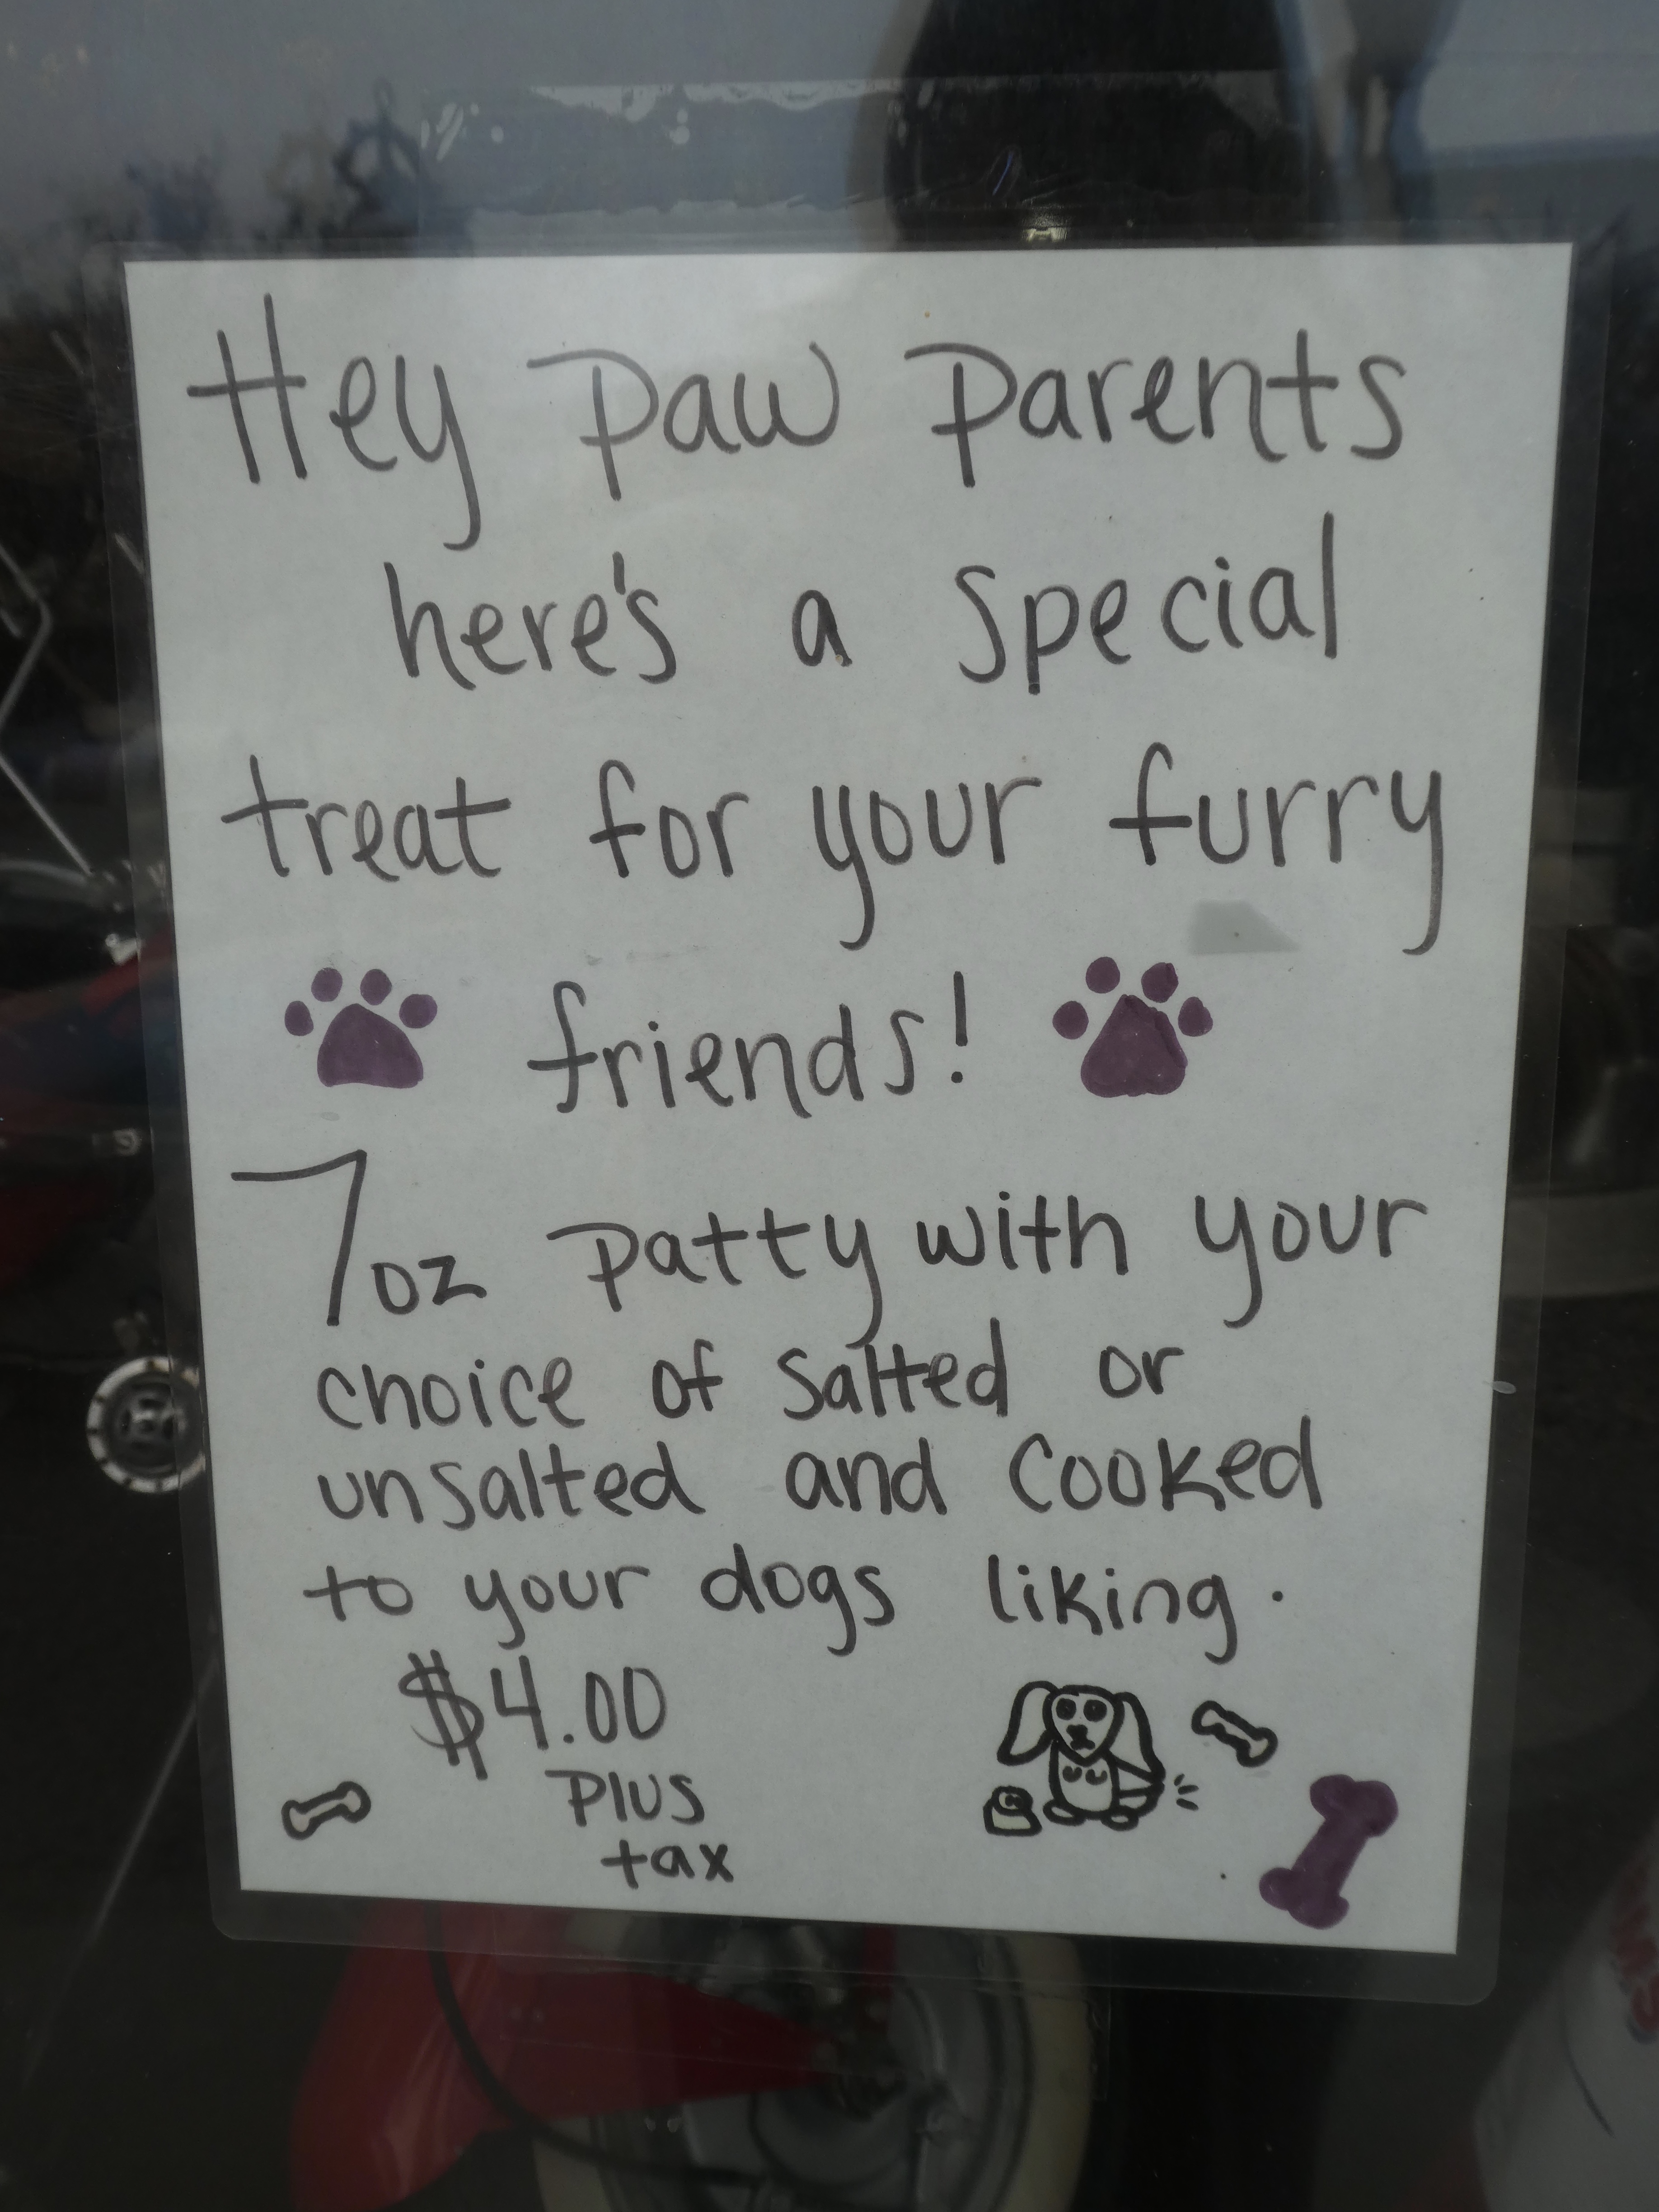 Hey Paw Parents
here's a special
treat for your furry
friends!
7oz Patty with your
choice of salted or
unsalted and cooked
to your dogs liking.
$4.00
Plus
tax